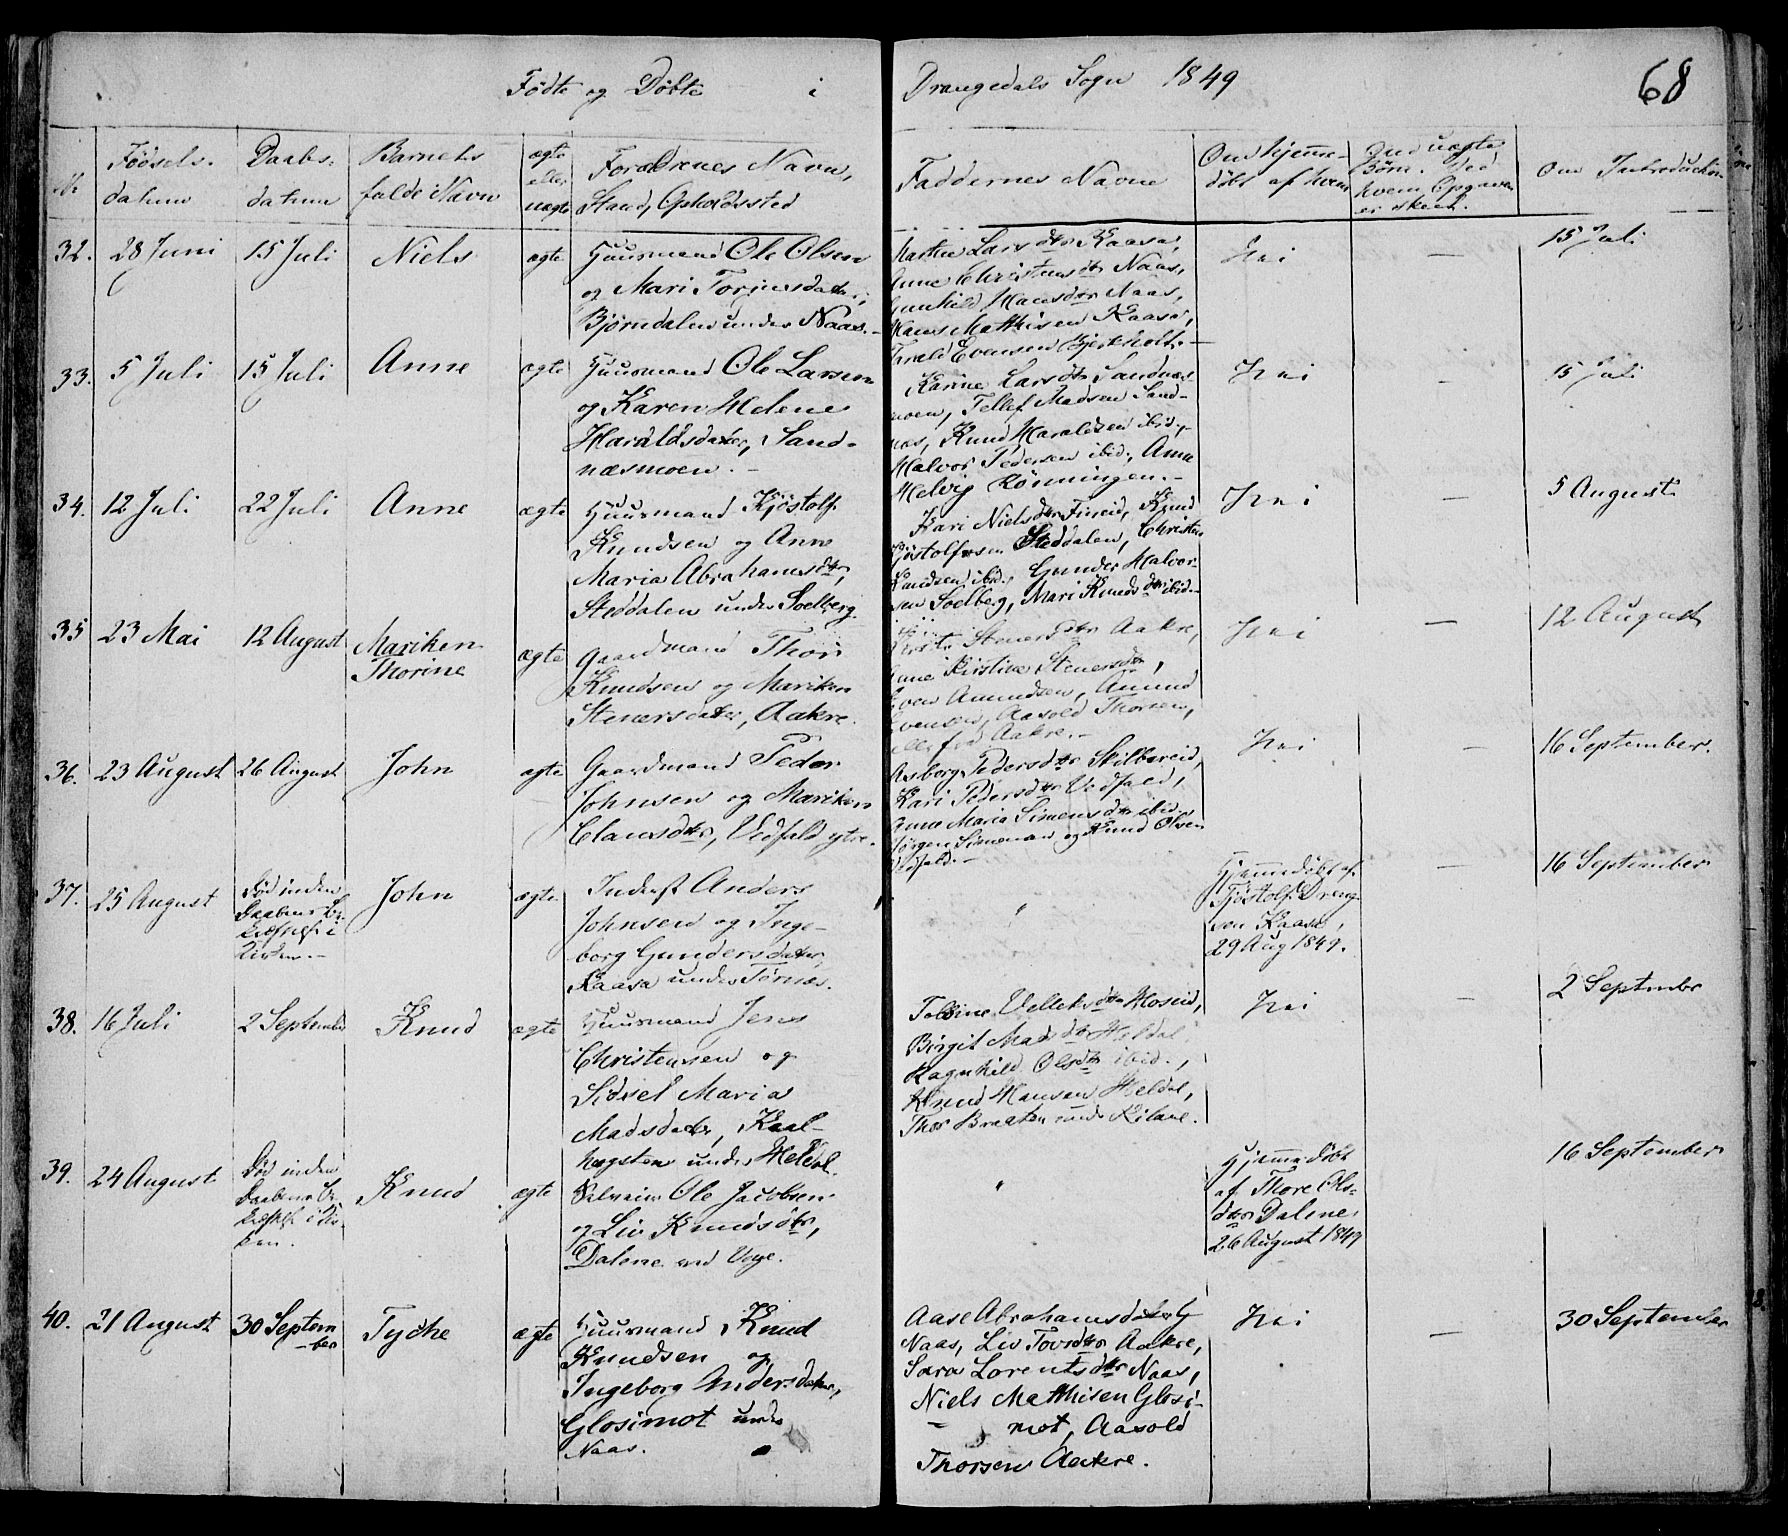 Fødte og Døbte i Drangedals Sogn 1849 68
№ Fødsels- datum
Daabs- datum
Barnets fulde Navn
ægte eller uægte
Forældrenes Navn, Stand, Opholdssted
Faddernes Navne
Om hjemme- døbt af hvem
Om Introduction
32. 28 Juni 15 Juli Niels ægte
Huusmand Ole Olsen
og Mari Torjusdatter,
Bjørndalen under Naas.-
Lars dtr Kaasa,
Anne Christens dtr Naas,
Gunhild Hans dtr Naas,
Hans Matthisen Kaasa,
Evensen Bjerkholt.-
Nei — 15 Juli
33. 5 Juli 15 Juli Anne ægte
Huusmand Ole Larsen
og Karen Helene
Haraldsdatter, Sand-
næsmoen.-
Karine Lars dtr Sandnæs-
moen, Tellef Madsen Sand-
næs, Knud Haraldsen ibid.,
Halvor Pedersen ibid., Anne
Helvig Rønningen.-
Nei - 15 Juli
34. 12 Juli 22 Juli Anne ægte
Huusmand Kjöstolf
Knudsen og Anne
Maria Abrahamsdtr,
Steddalen under Soelberg
Kari Niels dtr Fineid, Knud
Kjöstolfsen Steddalen, Christen
Knudsen ibid., Gunder Halvor-
sen Soelberg, Mari Knuds dtr ibid.-
Nei — 5 August
35 23 Mai 12 August Mariken
Thorine ægte
Gaardmand Thor
Knudsen og Mariken
Stenersdatter, Aakre.
Steners dtr Aakre,
Anne Kirstine Stenersdtr,
Even Amundsen, Amund
Evensen, Aasold Thorsen,
alle fra Aakre.-
Nei — 12 August
36. 23 August 26 August John ægte
Gaardmand Peder
Johnsen og Mariken
Clausdtr, Vedfald ytre.
Asborg Pedersdtr Skilbereid,
Kari Pedersdtr Vedfald,
Anne Maria Simens dtr ibid.,
Jørgen Simensen og Knud Olsen
Vedfald.-
Nei — 16 September.
37. 25 August Død inden
Daabens Be-
kræftelse i
Kirken.- John ægte
Inderst Anders
Johnsen og Inge-
borg Gundersdatter,
Kaasa under Tørnæs.
"
Hjemmedøbt af
Tjöstolf Dreng-
sen Kaasa,
29 Aug 1849.
— 16 September
38. 16 Juli 2 September Knud ægte
Huusmand Jens
Christensen og
Sidsel Maria
Madsdatter, Kaal-
hagsten under Heldal.
Velleksdtr Moseid,
Birgit Mads dtr Heldal
Ragnhild Olsdtr ibid.,
Knud Hansen Heldal,
Thor Braaten under Kilane.
Nei - 2 September
39. 24 August Død inden
Daabens Be-
kræftelse i Kir-
ken. Knud ægte
Selveier Ole Jacobsen
og Liv Knudsdtr,
Dalene ved Vege.
"
Hjemmedøbt
af Thore Ols-
dtr Dalene
26 August 1849
16 September
40. 21 August 30 Septem-
ber Tyche ægte
Huusmand Knud
Knudsen og
Ingeborg Andersdatter,
Glosimot under
Naas.
Aase Abrahamsdatter
Naas, Liv Tovsdtr Aakre,
Sara Lorentsdtr Naas,
Niels Matthisen Glosi-
mot, Aasold
Thorsen Aakre.
Nei — 30 September